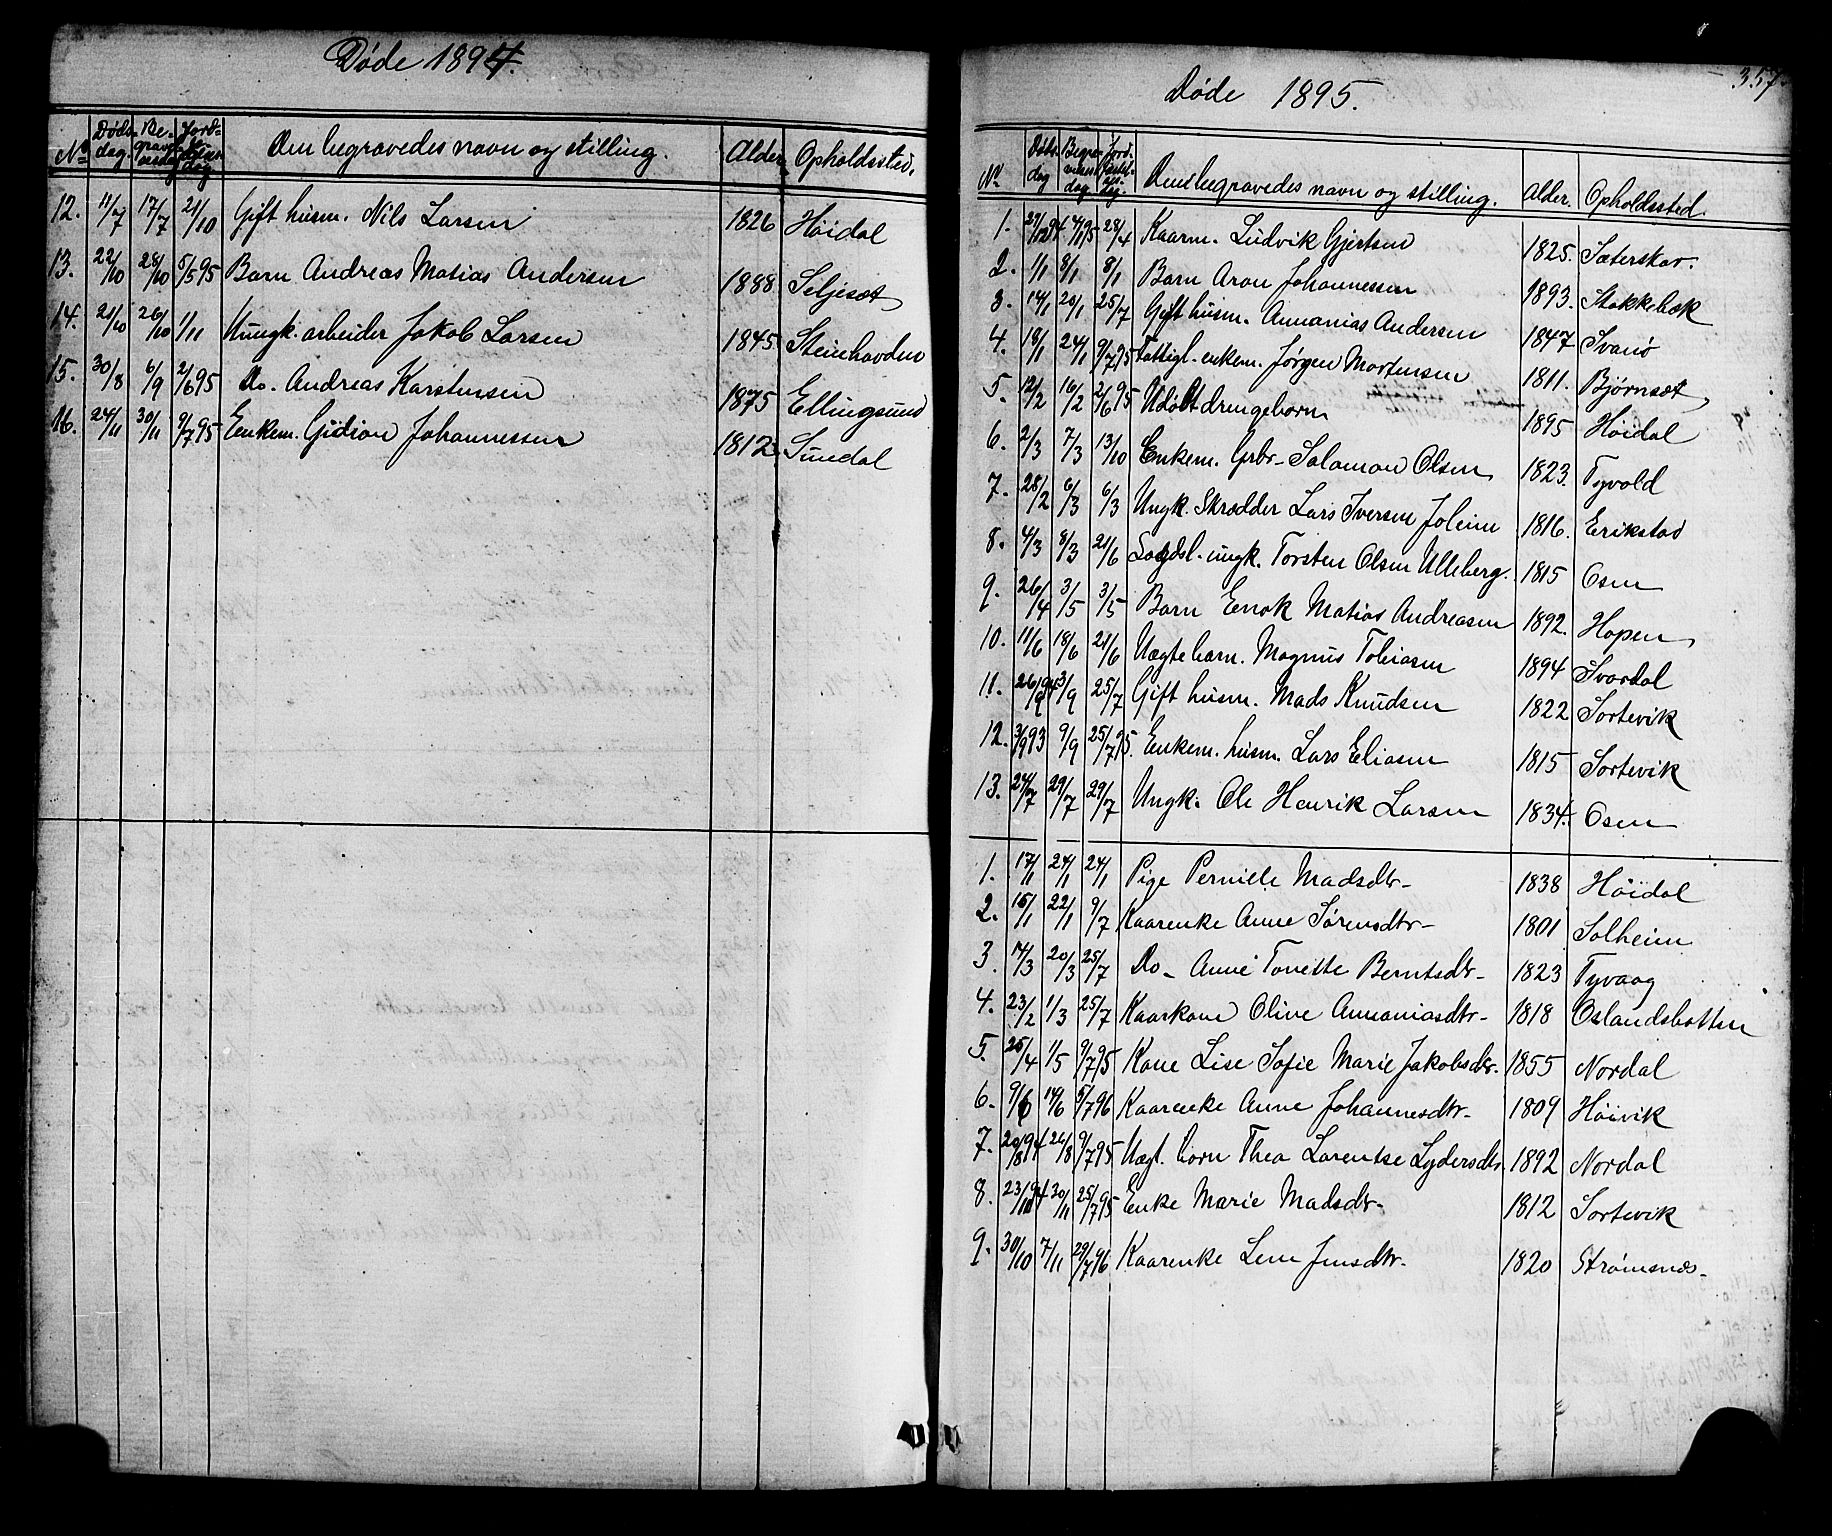 Døde 1894.
No Døds-dag. Be-gravelsesdag Jord-fæstelsesdag Den begravedes navn og stilling. Alder Opholdssted.
12. 11/7 17/7 21/10 Gift husm. Nils Larsen 1826 Høidal
13. 22/10 28/10 5/5 95 Barn Andreas Matias Andersen 1888 Seljesæt
14. 21/10 26/10 1/11 Ungk. arbeider Jakob Larsen 1845 Steinhovden
15. 30/8 6/9 2/6 95 Do. Andreas Karstensen 1875 Ellingsund
16. 24/11 30/11 9/7 95 Enkem. Gidion Johannessen 1812 Sundal
357.
Døde 1895.
No Døds-dag Begravelses dag Jord-fæstelsesdag. Den begravedes navn og stilling. Alder. Opholdssted.
1. 27/12 94 4/1 95 28/4 Kaarm. Ludvik Gjertsen 1825. Sæterskar.
2. 1/1 8/1 8/1 Barn Aron Johannessen 1893. Stokkebæk
3. 14/1 20/1 25/7 Gift husm. Annanias Andersen 1847 Svanø
4. 18/1 24/1 9/7 95 Fattigl. enkem. Jørgen Mortensen 1811. Bjørnsæt
5. 12/2 16/2 2/6 95 Udøbt drengebarn 1895 Høidal
6. 2/3 7/3 13/10 Enkem. Grbr. Salamon Olsen 1823. Tyvold
7. 28/2 6/3 6/3 Ungk. Skrædder Lars Iversen Joleim 1816. Erikstad
8. 4/3 8/3 21/6 Lægdsl. ungk. Torsten Olsen Ulleberg. 1815 Osen
9. 26/4 3/5 3/5 Barn Enok Matias Andreasen 1892. Hopen
10. 11/6 18/6 21/6 Uægte barn. Magnus Tobiasen 1894 Svardal
11. 26/9 94 3/9 25/7 Gift husm. Mads Knudsen 1822 Sortevik
12. 3/9 93 9/9 25/7 95. Enkem. husm. Lars Eliasen 1815 Sortevik
13. 24/7 29/7 29/7 Ungk. Ole Henrik Larsen 1834. Osen
1. 17/1 24/1 24/1 Pige Pernille Madsdtr. 1838 Høidal
2. 15/1 22/1 9/7 Kaarenke Anne Sørensdtr. 1801 Solheim
3. 14/3 20/3 25/7 Do. Anne Tonette Berntsdtr. 1823 Tyvaag
4. 23/2 1/3 25/7 Kaarkone Oline Annaniasdtr. 1818 Oslandsbotten
5. 25/4 1/5 9/7 95 Kone Lise Sofie Marie Jakobsdtr. 1855 Nordal
6. 9/6 14/6 5/7 96 Kaarenke Anne Johannesdtr. 1809 Høivik
7. 20/8 94 26/8 9/7 95 Uægt. barn Thea Larentse Lydersdtr. 1892 Nordal
8. 23/11 94 30/11 25/7 95 Enke Marie Madsdtr. 1812 Sortevik
9. 30/10 7/11 29/7 96 Kaarenke Lene Jensdtr. 1820 Strømsnæs.